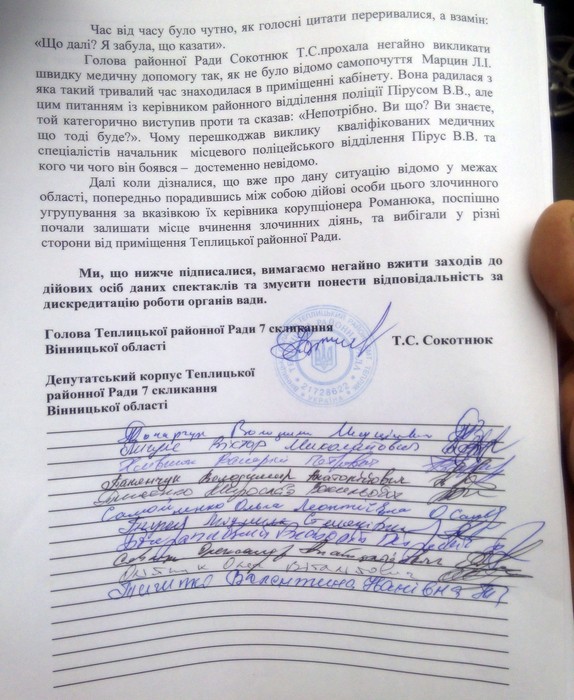 Час від часу було чутно, як голосні цитати переривалися, а взамін:
«Що далі? Я забула, що казати».
Голова районної Ради Сокотнюк Т.С.прохала негайно викликати
швидку медичну допомогу так, як не було відомо самопочуття Марцин Л.І.
яка такий тривалий час знаходилася в приміщенні кабінету. Вона радилася з
цим питанням із керівником районного відділення поліції Пірусом В.В., але
той категорично виступив проти та сказав: «Непотрібно. Ви що? Ви знаєте,
що тоді буде?». Чому перешкоджав виклику кваліфікованих медичних
спеціалістів начальник місцевого поліцейського відділення Пірус В.В. та
кого чи чого він боявся – достеменно невідомо.
Далі коли дізналися, що вже про дану ситуацію відомо у межах
області, попередньо порадившись між собою дійові особи цього злочинного
угрупування за вказівкою їх керівника корупціонера Романюка, поспішно
почали залишати місце вчинення злочинних діянь, та вибігали у різні
сторони від приміщення Теплицької районної Ради.
Ми, що нижче підписалися, вимагаємо негайно вжити заходів до
дійових осіб даних спектаклів та змусити понести відповідальність за
дискредитацію роботи органів вади.
Голова Теплицької районної Ради 7 скликання
Вінницької області
Т.С. Сокотнюк
Депутатський корпус Теплицької
районної Ради 7 скликання
Вінницької області
Володимир
Віктор Миколайович
Володимир Анатолійович
Ольга Леонтіївна
Людмила
Олександр Анатолійович
Олег Віталійович
Валентина Панівна